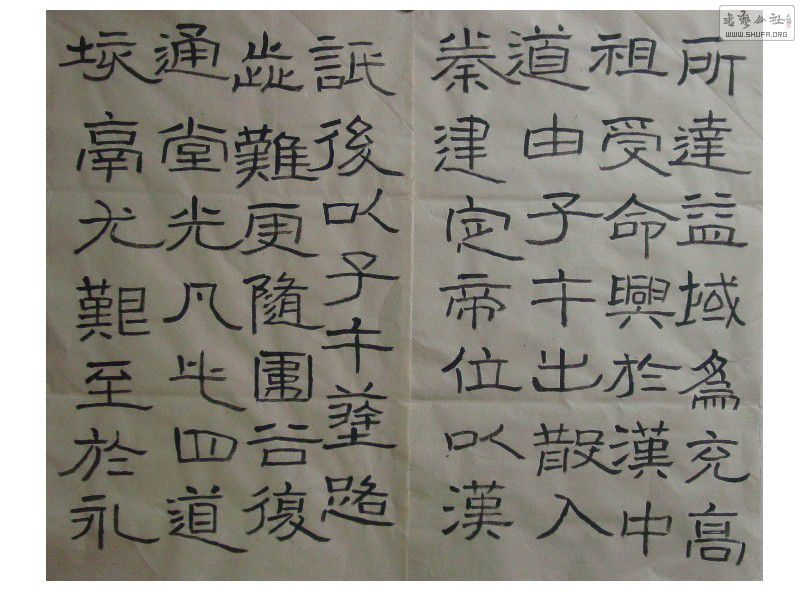 所達益域爲充高
祖受命興於漢中
道由子午出散入
秦建定帝位以漢
詆後以子午塗路
歰難更隨圍谷復
通堂光凡此四道
垓鬲尤艱至於永
書藝公社
WWW.SHUFA.ORG